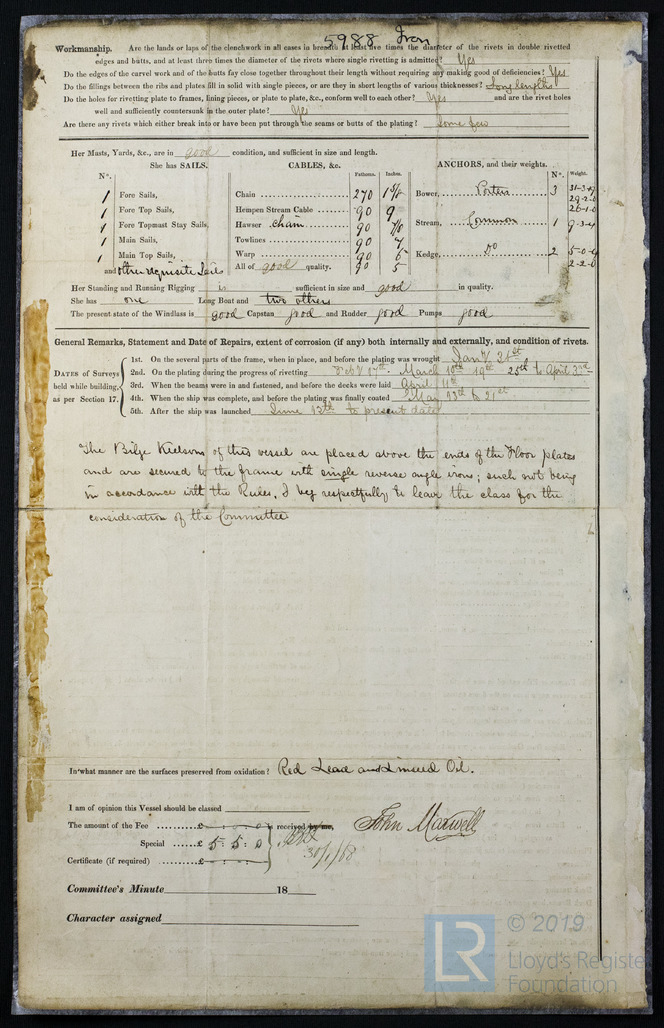 5988 Iron
Workmanship. Are the lands or laps of the clenchwork in all cases in breadth at least five times the diameter of the rivets in double rivetted
edges and butts, and at least three times the diameter of the rivets where single rivetting is admitted? Yes
Do the edges of the carvel work and of the butts fay close together throughout their length without requiring any making good of deficiencies? Yes
Do the fillings between the ribs and plates fill in solid with single pieces, or are they in short lengths of various thicknesses? Long lengths
Do the holes for rivetting plate to frames, lining pieces, or plate to plate, &c., conform well to each other? Yes and are the rivet holes
well and sufficiently countersunk in the outer plate? Yes
Are there any rivets which either break into or have been put through the seams or butts of the plating? Some few
Her Masts, Yards, &c., are in good condition, and sufficient in size and length.
She has SAILS. CABLES, &c. ANCHORS, and their weights.
N°. Fathoms. Inches. N°. Weight.
1 Fore Sails, Chain 270 1 5/8 Bower, Porters 3 31-3-9
29-2-0
1 Fore Top Sails, Hempen Stream Cable 90 9 26-1-0
1 Fore Topmast Stay Sails, Hawser chain 90 7/8 Stream, Common 1 9-3-4
1 Main Sails, Towlines 90 7
1 Main Top Sails, Warp 90 6 Kedge, Do 2 5-0-4
and other requisite Sails All of good quality. 90 5 2-2-0
Her Standing and Running Rigging is sufficient in size and good in quality.
She has one Long Boat and two others
The present state of the Windlass is good Capstan good and Rudder good Pumps good
General Remarks, Statement and Date of Repairs, extent of corrosion (if any) both internally and externally, and condition of rivets.
DATES of Surveys held while building, as per Section 17.
1st. On the several parts of the frame, when in place, and before the plating was wrought Jany 26st
2nd. On the plating during the progress of rivetting Feby 17th March 10th 19th 25th to April 3rd
3rd. When the beams were in and fastened, and before the decks were laid April 11th
4th. When the ship was complete, and before the plating was finally coated May 13th to 21st
5th. After the ship was launched June 13th to present date
The Bilge Keelsons of this vessel are placed above the ends of the Floor plates
and are secured to the frame with single reverse angle irons; such not being
in accordance with the Rules, I beg respectfully to leave the class for the
consideration of the Committee
In what manner are the surfaces preserved from oxidation? Red Lead and Linseed Oil.
I am of opinion this Vessel should be classed
The amount of the Fee £ : : received by me, John Maxwell
Special £ 5 : 5 : 0
30/1/68
Certificate (if required) £ : :
Committee's Minute 18
Character assigned
LR © 2019
Lloyd's Register
Foundation